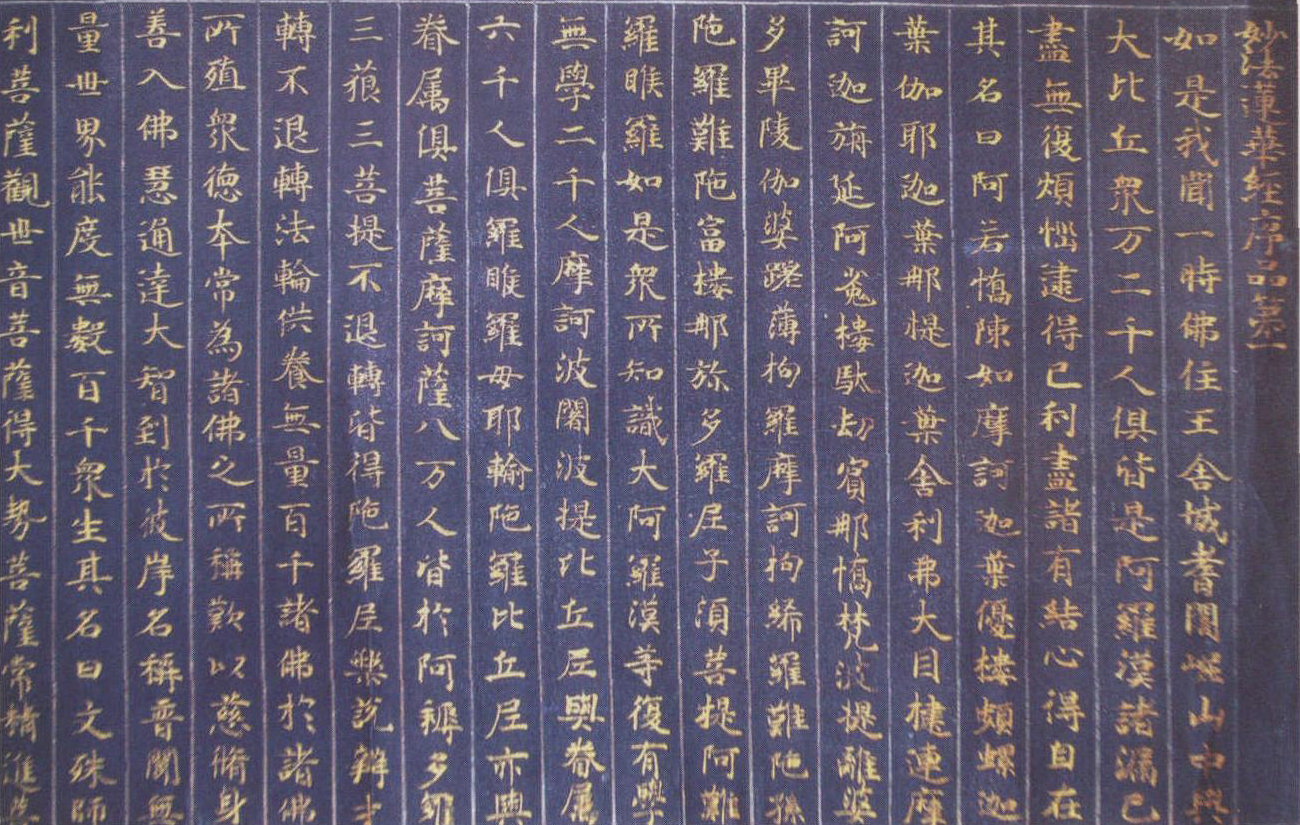 妙法蓮華經序品第一
如是我聞一時佛住王舍城耆闍崛山中與
大比丘衆万二千人俱皆是阿羅漢諸漏已
盡無復煩惱逮得己利盡諸有結心得自在
其名曰阿若憍陳如摩訶迦葉優樓頻螺迦
葉伽耶迦葉那提迦葉舍利弗大目揵連摩
訶迦旃延阿㝹樓馱劫賓那憍梵波提離婆
多畢陵伽婆蹉薄拘羅摩訶拘絺羅難陁孫
陁羅難陁富樓那弥多羅尼子須菩提阿難
羅睺羅如是衆所知識大阿羅漢等復有學
無學二千人摩訶波闍波提比丘尼與眷屬
六千人俱羅睺羅母耶輸陁羅比丘尼亦與
眷属俱菩薩摩訶薩八万人皆於阿耨多羅
三藐三菩提不退轉皆得陁羅尼樂說辯才
轉不退轉法輪供養無量百千諸佛於諸佛
所殖衆德本常為諸佛之所稱歎以慈脩身
善入佛慧通達大智到於彼岸名稱普聞無
量世界能度無數百千衆生其名曰文殊師
利菩薩觀世音菩薩得大勢菩薩常精進菩